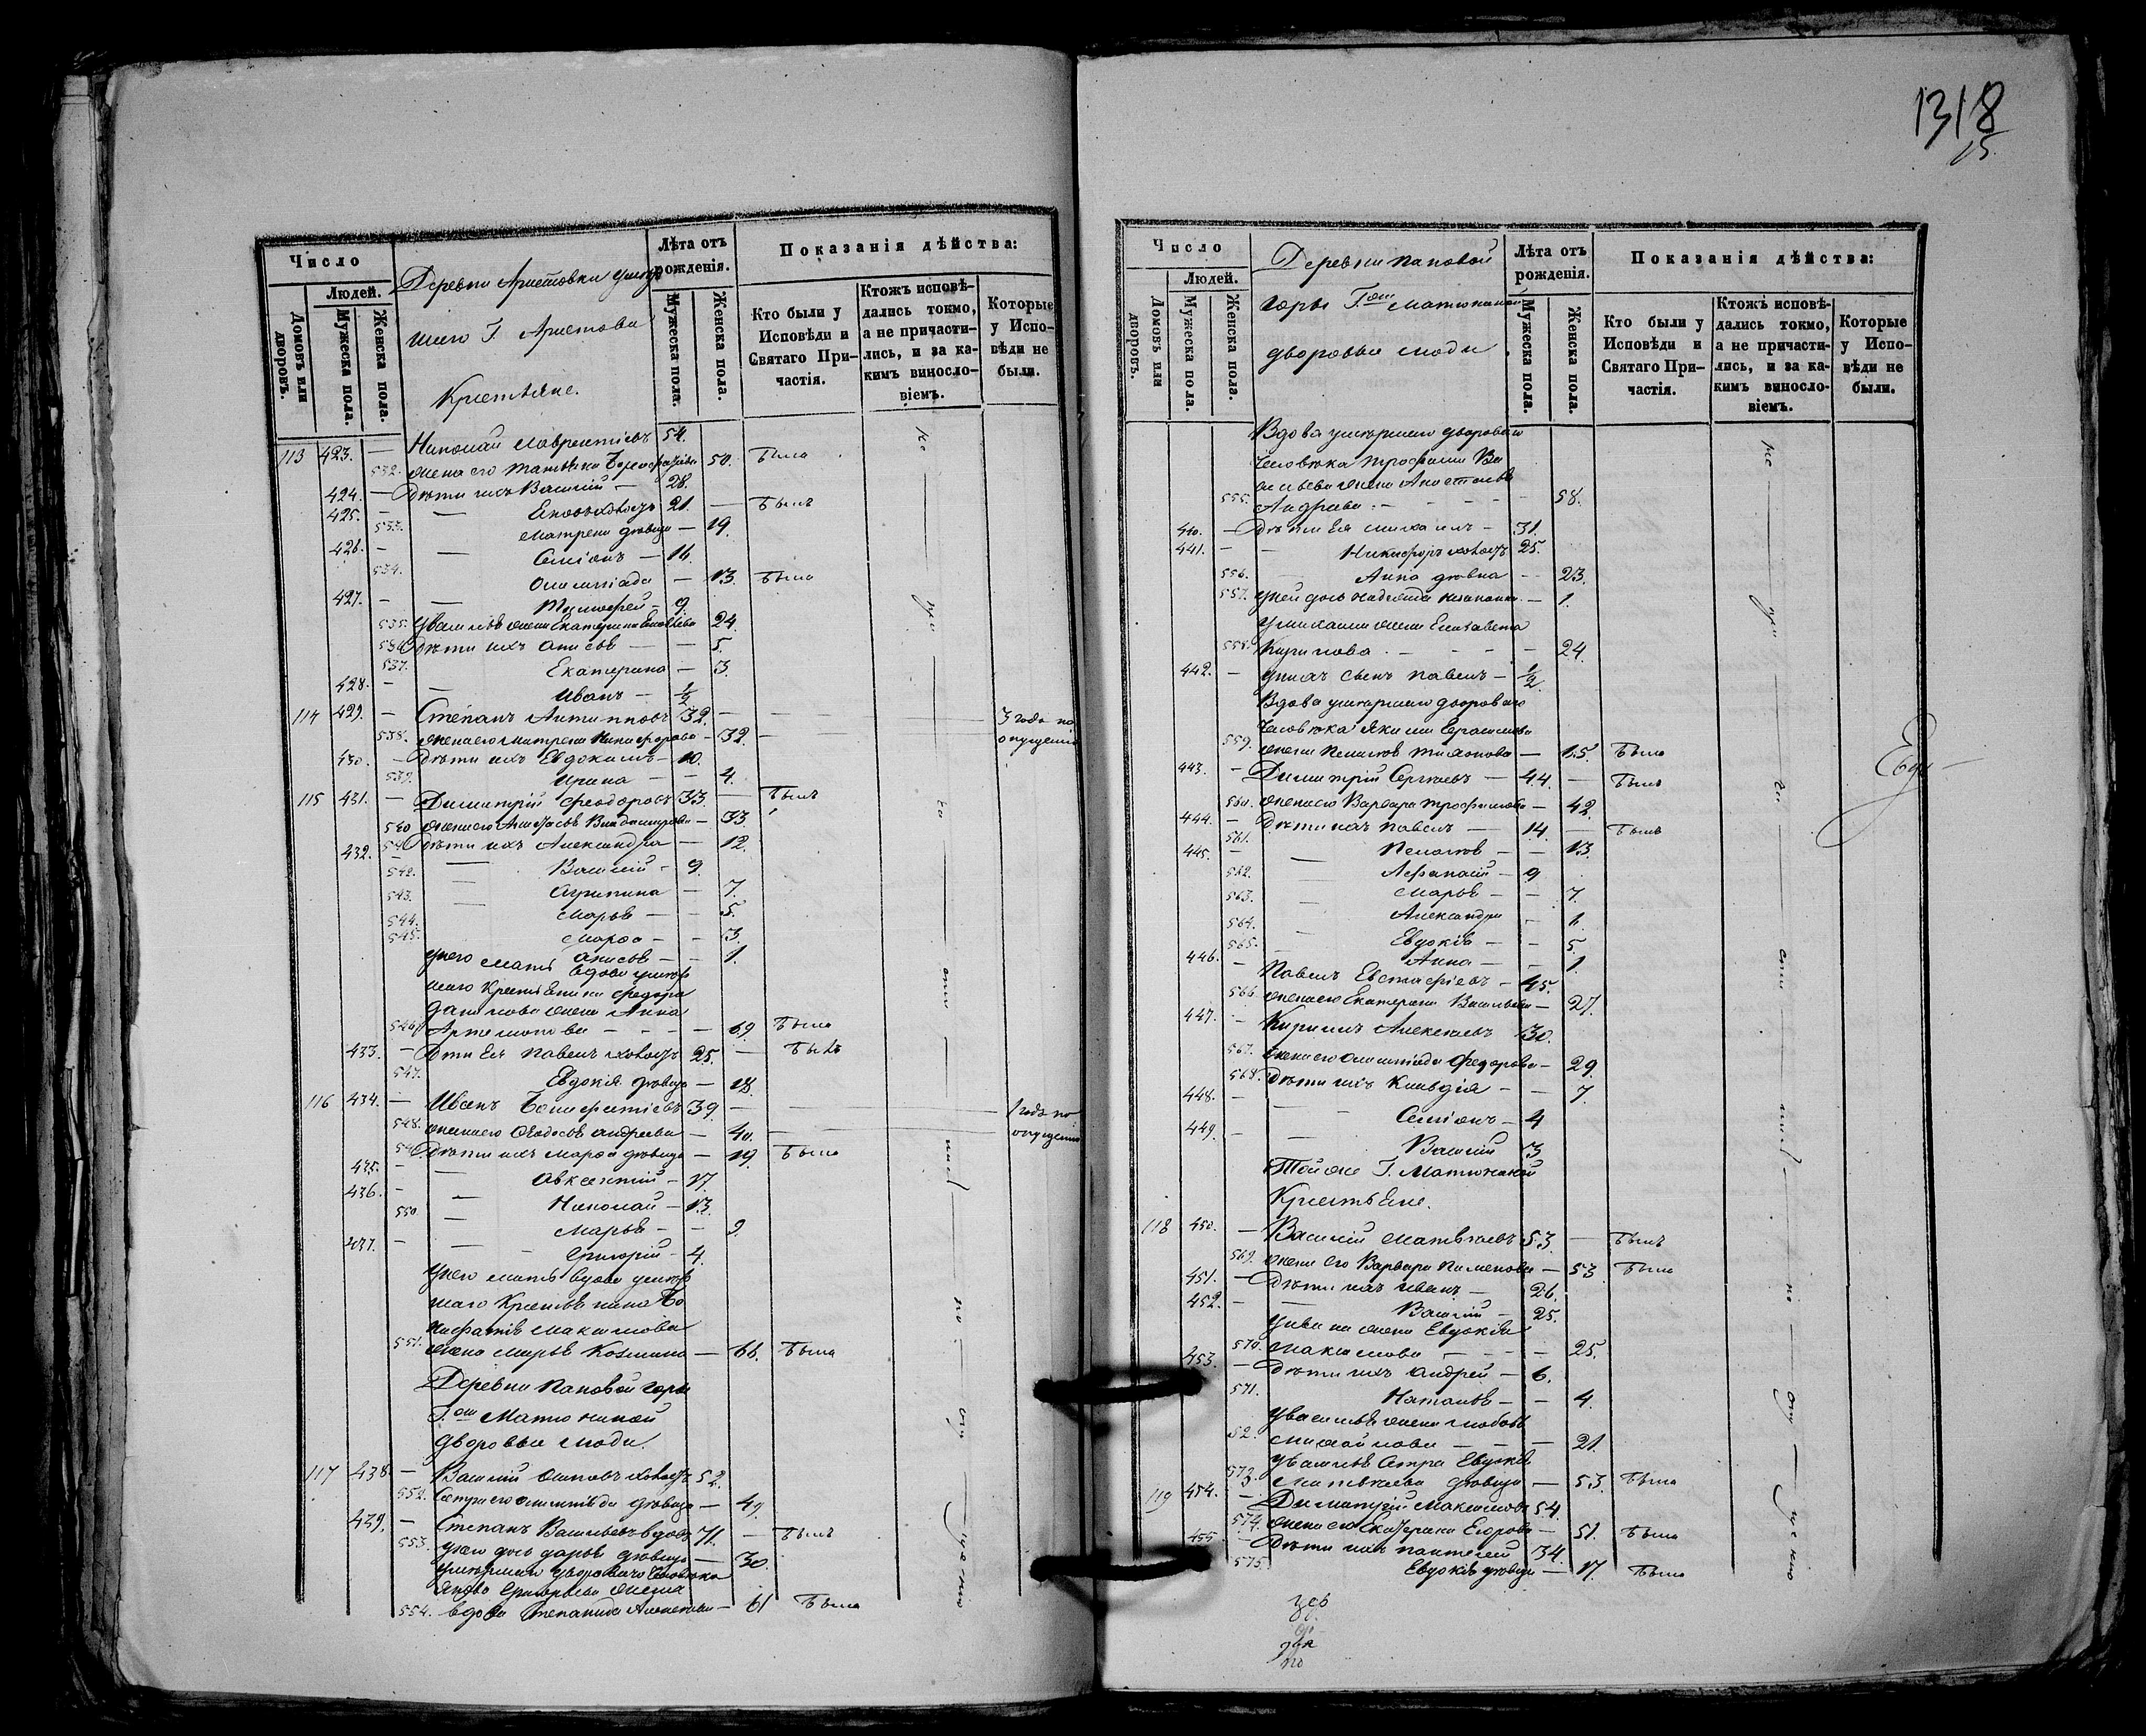 1318
15
Число
Людей.
Домовъ или дворовъ.
Мужеска пола.
Женска пола.
Деревни Аристовки умер
шаго Г. Аристова
Крестьяне.
Лѣта отъ рожденія.
Мужеска пола.
Женска пола.
Показанія дѣйства:
Кто были у Исповѣди и Святаго Причастія.
Ктожъ исповѣдались токмо, а не причастились, и за какимъ винословіемъ.
Которые у Исповѣди не были.
113 423. — Николай Лаврентіевъ 54.
532. жена его Татьяна 50. Была
424. — Дѣти ихъ Василій — 28.
425. — холостъ 21. — Былъ
533. Матрена дѣвица — 19.
426. — Семіонъ — 16.
534. Олимпіада — 13. Была
427. — Тимофей — 9.
535. жена Екатерина 24.
536. Дѣти ихъ Анисья — — 5.
537. Екатерина — 3.
428. — Иванъ — 1/2
114 429. — Степанъ Антиповъ 32. — 3 года по
538. жена его Матрена Никифорова — 32. — опущенію
430. — Дѣти ихъ Евдокимъ — 10.
539. Ирина — — 4.
115 431. — Димитрій Феодоровъ 33. — Былъ
540 жена его Владимирова — 33
541. Дѣти ихъ Александра — 12.
432. — Василій — 9.
542. Агрипина — 7.
543. Марья — — 5.
544. Марѳа — — 3.
545. Анисья — — 1.
у него мать вдова умер
шаго Крестьянина Федора
Данилова жена Анна
546. Артемонова — — — 69. Была
433. — Дѣти ея Павелъ холостъ 25. — Былъ
547. Евдокія дѣвица — 18.
116 434. — Иванъ Бонифатіевъ 39. — 1 годъ по
548. жена его Ѳеодосья Андреева — 40. — опущенію
549. Дѣти ихъ Марѳа дѣвица — 19. Была
435. — Авксентій — 17.
436. — Николай — 13.
550. Марья — — 9.
437. — Григорій — 4.
у него мать вдова умер
шаго Крестьянина Бо
нифатія Максимова
551. жена Марья Козмина — 66. Была
Деревни Пановой горы
Г.жи Матюниной
дворовые люди.
117 438 — Василій Осиповъ холостъ 52.
552. Сестра его Олимпіада дѣвица — 49.
439. — Степанъ Васильевъ вдовъ 71. — Былъ
553. у него дочь Дарья дѣвица — 30.
умершаго двороваго человѣка
Якова Григорьева жена
554. вдова Степанида Алексѣева — 61 Была
Число
Людей.
Домовъ или дворовъ.
Мужеска пола.
Женска пола.
Деревни Пановой
горы Г.жи Матюниной
дворовые люди
Лѣта отъ рожденія.
Мужеска пола.
Женска пола.
Показанія дѣйства:
Кто были у Исповѣди и Святаго Причастія.
Ктожъ исповѣдались токмо, а не причастились, и за какимъ винословіемъ.
Которые у Исповѣди не были.
Вдова умершаго двороваго
человѣка Трофима Ва
сильева жена
555. Андреева. — — — — 58.
440. — Дѣти ея Михаилъ — 31.
441. — — Никифоръ холостъ 25.
556. Анна дѣвка — 23.
557. у ней дочь Надежда незаконн. — 1.
у Михаила жена Елизавета
558. Кирилова. — — — — 24.
442. — у нихъ сынъ Павелъ — 1/2.
Вдова умершаго двороваго
человѣка Якима Герасимова
559. жена Пелагея — 65. Была
443. — Димитрій Сергѣевъ — 44. — Былъ
560. жена его Варвара Трофимова — 42.
444. — Дѣти ихъ Павелъ — 14. — Былъ
561. Пелагея — — 13.
445. — Афанасій — 9
562. Марья — — 7.
563. Александра — 1.
564. Евдокія — — 5.
565. Анна — — 1.
446. — Павелъ Евстафіевъ — 45.
566. жена его Екатерина Васильева — 27.
447. — Кирилъ Алексѣевъ 30.
567. жена его Олимпіада Федорова — 29.
568. Дѣти ихъ Клавдія — — 7.
448. — Семіонъ — 4
449. — Василій 3
Той же Г. Матюниной
Крестьяне.
118 450. — Василій Матвѣевъ 53. — Былъ
569. жена его Варвара Пименова — 53. Была
451. — Дѣти ихъ Иванъ — 26.
452. — Василій — 25.
у Ивана жена Евдокія
570. Максимова — — — 25.
453. — Дѣти ихъ Андрей — 6.
571. Наталья — — 4.
у Василья жена Любовь
52. Михайлова — — — 21.
у Василья Сестра Евдокія
573. Матвѣева дѣвица — 53. Была
119 454. — Димитрій Максимовъ 54.
574. жена его Екатерина Егорова — 51. Была
455 — Дѣти ихъ Пантелей 34.
575. Евдокія дѣвица — 17. Была